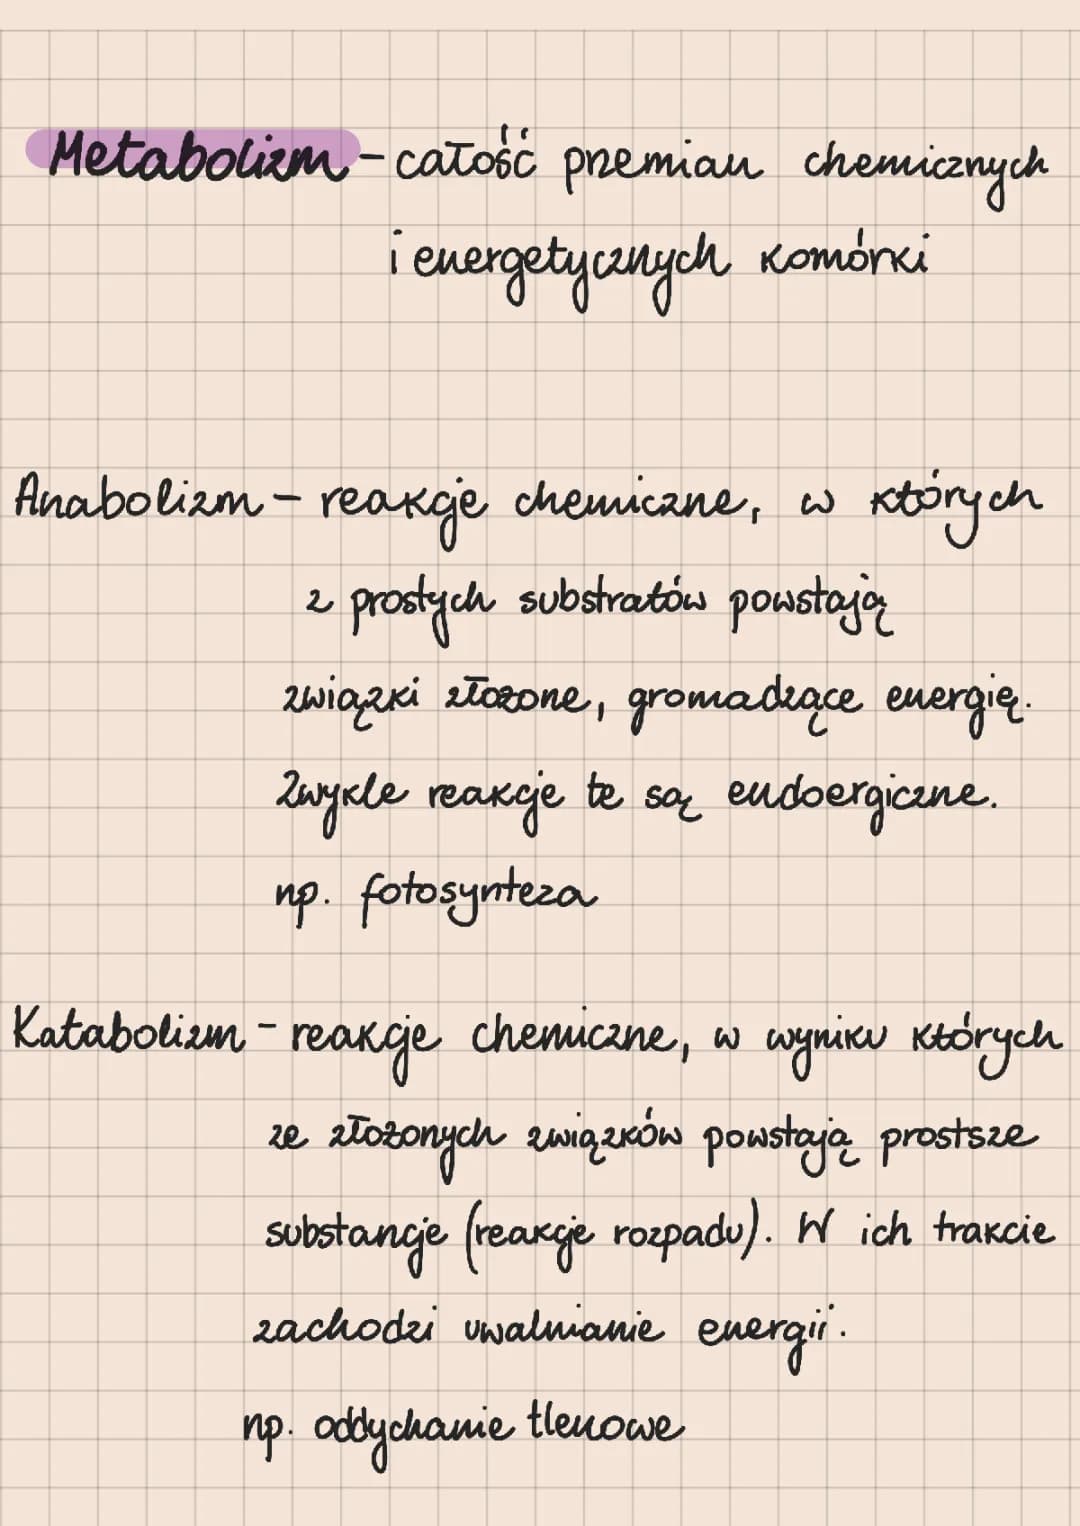 Metabolizm - całość przemian chemicznych
i energetycznych komórki
Anabolizm - reakcje chemiczne, w których
z prostych substratów powstają
związki złożone, gromadzące energię.
Zwykle reakcje te są endoergiczne.
np. fotosynteza
Katabolizm - reakcje chemiczne, w wyniku których
ze złożonych związków powstają prostsze
substancje (reakcje rozpadu). W ich trakcie
zachodzi uwalnianie energii.
np. oddychanie tlenowe